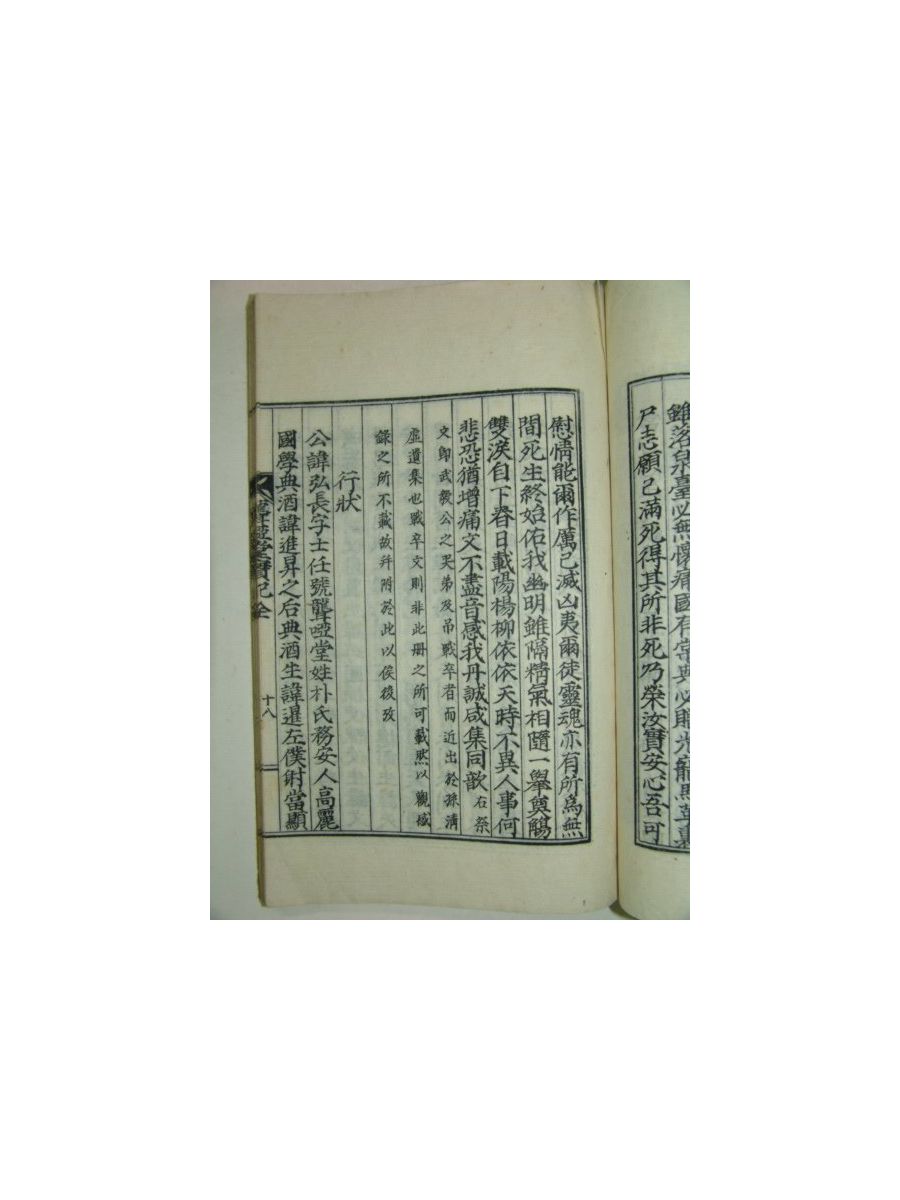 雖落泉臺必無懷痛國有常典必贈
尸志願已滿死得其所非死乃榮汝實安心吾可
慰情能爾作厲已滅凶夷爾徒靈魂亦有所爲無
間死生終始佑我幽明雖隔精氣相隨一舉奠觴
雙淚自下春日載陽楊柳依依天時不異人事何
悲恐猶增痛文不盡音感我丹誠咸集同歆 右祭
文卽武毅公之 弟及吊戰卒者而近出於孫淸
虛遺集也戰卒文則非此册之所可載然以觀
錄之所不載故幷附於此以俟後攷
行狀
公諱弘長字士任號聾啞堂姓朴氏務安人高麗
國學典酒諱進昇之后典酒生諱暹左僕射當顯
聾啞堂實記 全
十八